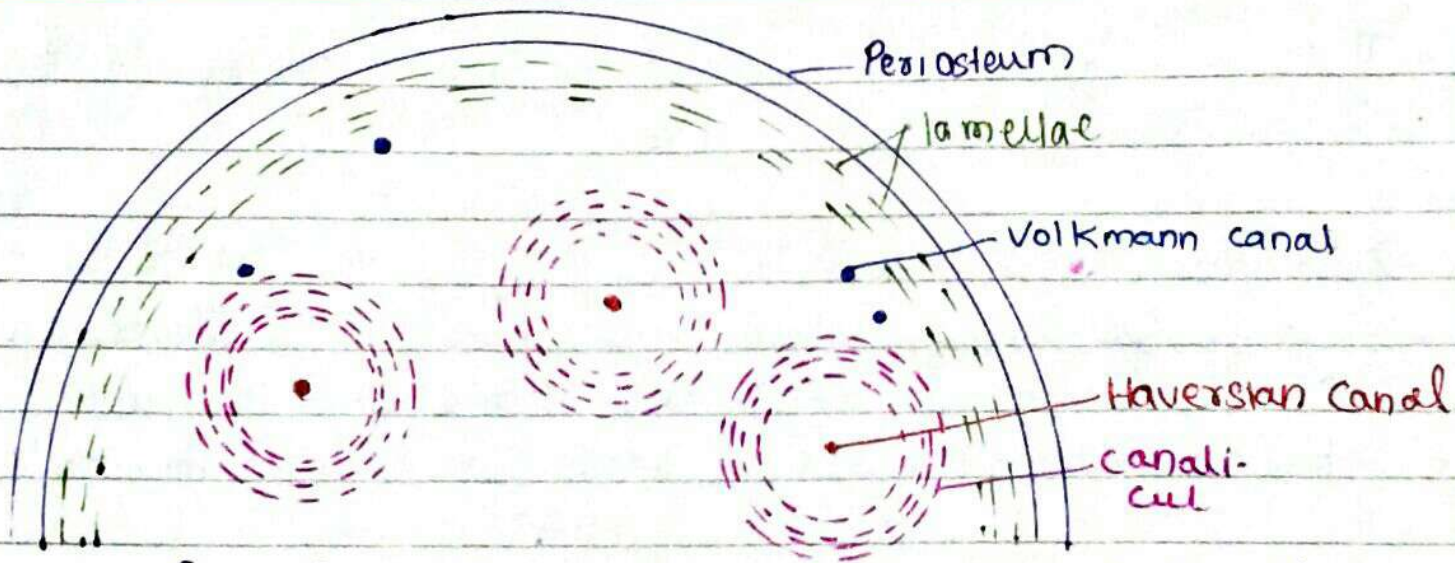 Periosteum
lamellae
Volkmann canal
Haversian canal
canali-
cul